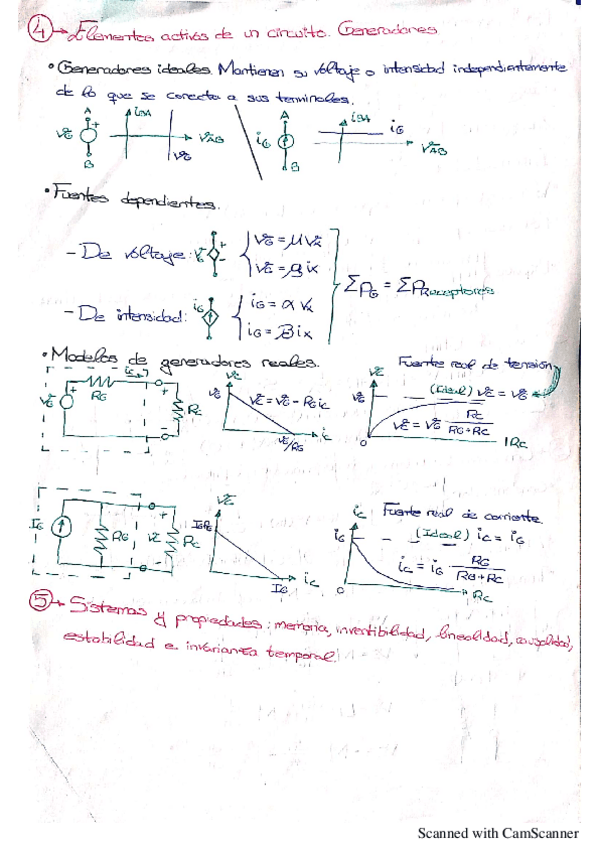 ④→ Elementos activos de un circuito. Generadores
• Generadores ideales. Mantienen su voltaje o intensidad independientemente
de lo que se conecta a sus terminales.
A iBA A iBA
vG + vAB iG iG
vG vAB
B B
• Fuentes dependientes.
- De voltaje: vG + vG = μVx
vG = ρix
ΣPG = ΣPReceptores
- De intensidad: iG iG = αVx
iG = βix
• Modelos de generadores reales. Fuente real de tensión
vG + RG + RC - vC vG vC = vG - RG iC vG/RG iC
vC vG (Ideal) vC = vG
vC = vG RC / RG+RC
0 RC
IG RG + vC - RC vC IGRG IG iC
iC Fuente real de corriente
iG (Ideal) iC = iG
iC = iG RG / RG+RC
0 RC
⑤→ Sistemas y propiedades: memoria, invertibilidad, linealidad, causalidad,
estabilidad e invarianza temporal.
Scanned with CamScanner